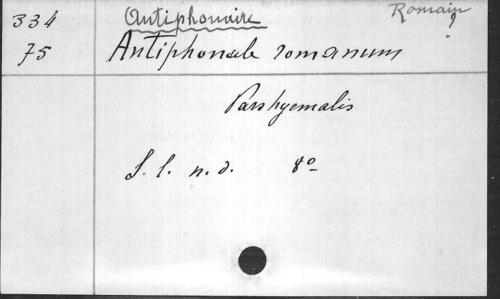 334 Antiphonaire Romain ?
75 Antiphonale romanum
Pars hyemalis
S. l. n. d. 8o